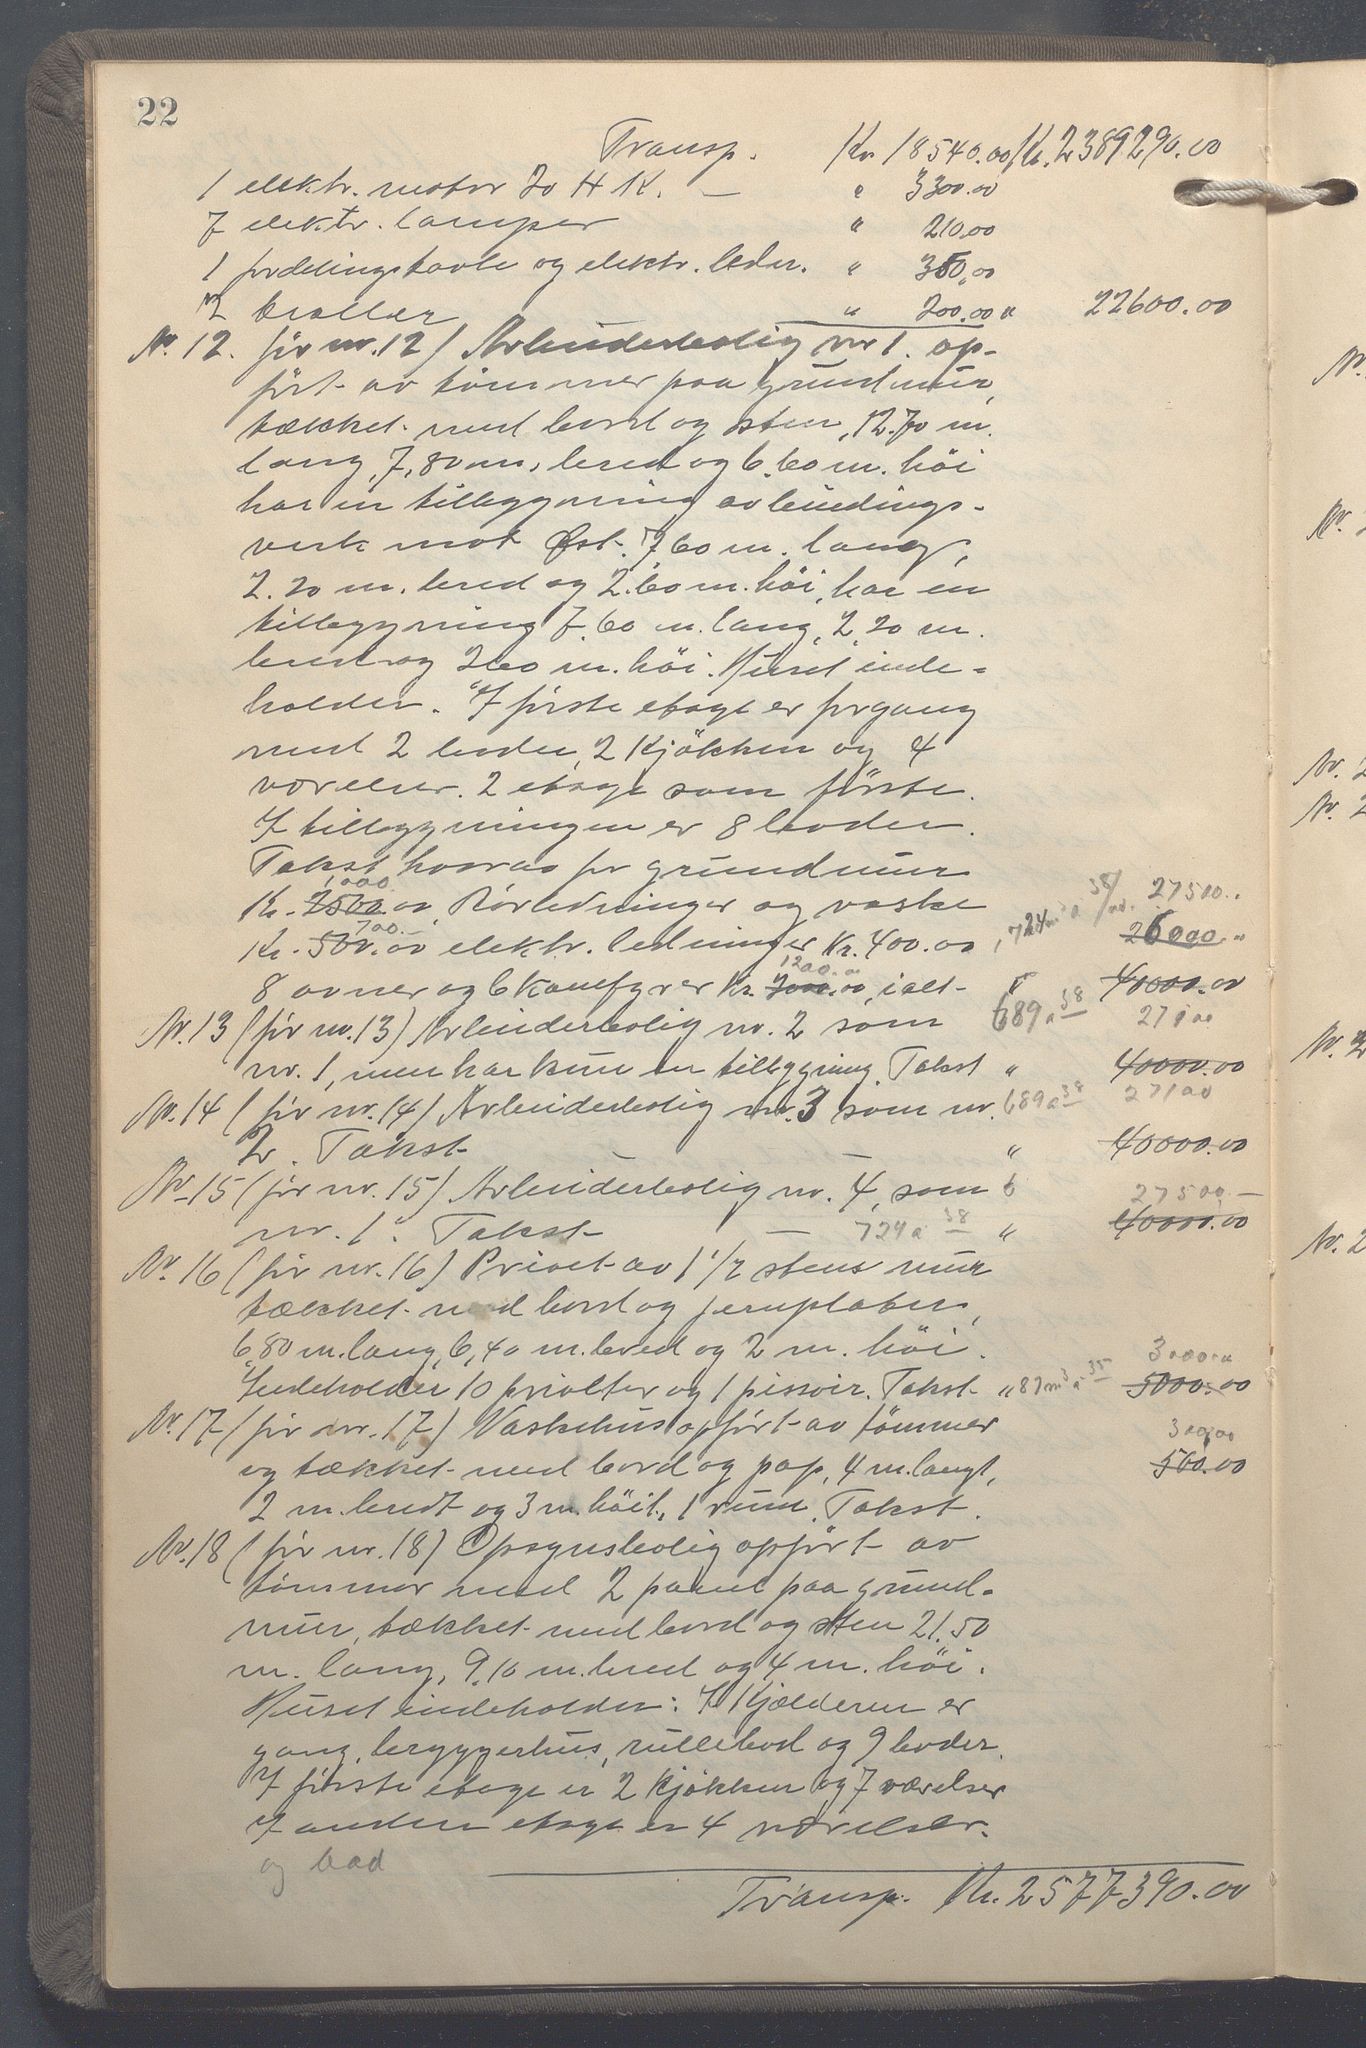 22
Transp. Kr. 18540.00 Kr. 2389290.00
1 elektr. motor 20 H K. — " 3300.00
7 elektr. lamper " 210.00
1 fordelingstavle og elektr. leder. " 350.00
2 " 200.00 " 22600.00
Nr. 12. för nr. 12) Arbeiderbolig nr 1. op-
fört av tömmer paa grundmur,
tækket med bord og sten, 12.70 m.
lang, 7,80 m. bred og 6.60 m. höi
har en tilbygning av bindings-
verk mot Øst. 7.60 m. lang,
2.20 m. bred og 2.60 m. höi, har en
tilbygning 7.60 m. lang, 2.20 m.
bred og 260 m. höi. Huset inde-
holder. I förste etage er forgang
med 2 boder, 2 Kjökken og 4
værelser. 2 etage som förste.
I tilbygningen er 8 boder.
Takst hvorav for grundmur
1000.
Kr. 2500.00, Rörledninger og vaske 724 m³ a 38/ 27500..
700.
Kr. 500.00 elektr. ledninger Kr. 400.00 26000 "
1200.00
8 ovner og 6 komfyrer Kr. 2000.00, ialt " 40000.00
Nr. 13 (för nr. 13) Arbeiderbolig nr. 2 som 689 a 38 27100
nr. 1, men har kun en tilbygning. Takst " 40000.00
Nr. 14 (för nr. 14) Arbeiderbolig nr. 3 som nr. 689 a 38 27100
2. Takst " 40000.00
Nr. 15 (för nr. 15) Arbeiderbolig nr. 4, som 27500.—
nr. 1. Takst — 724 a 38 " 40000.00
Nr. 16 (för nr. 16) Privet av 1 1/2 stens mur
tækket med bord og jernplater,
6,80 m. lang, 6,40 m. bred og 2 m. höi. 3000.00
Indeholder 10 privetter og 1 pissoir. Takst " 87 m³ a 35 5000.00
Nr. 17 (för nr. 17) Vaskehus opfört av tömmer 300.00
og tækket med bord og pap, 4 m. langt, 500.00
2 m. bredt og 3 m. höit, 1 rum. Takst.
Nr. 18 (för nr. 18) Opsynsbolig opfört av
tömmer med 2 panel paa grund-
mur, tækket med bord og sten 21.50
m. lang, 9.10 m. bred og 4 m. höi.
Huset indeholder: I Kjælderen er
gang, bryggerhus, rullebod og 9 boder.
I förste etage er 2 kjökken og 7 værelser
I anden etage er 4 værelser.
og bad
Transp. Kr. 2577390.00
Nr.
Nr.
Nr. 2
Nr. 2
Nr. 2
Nr. 2